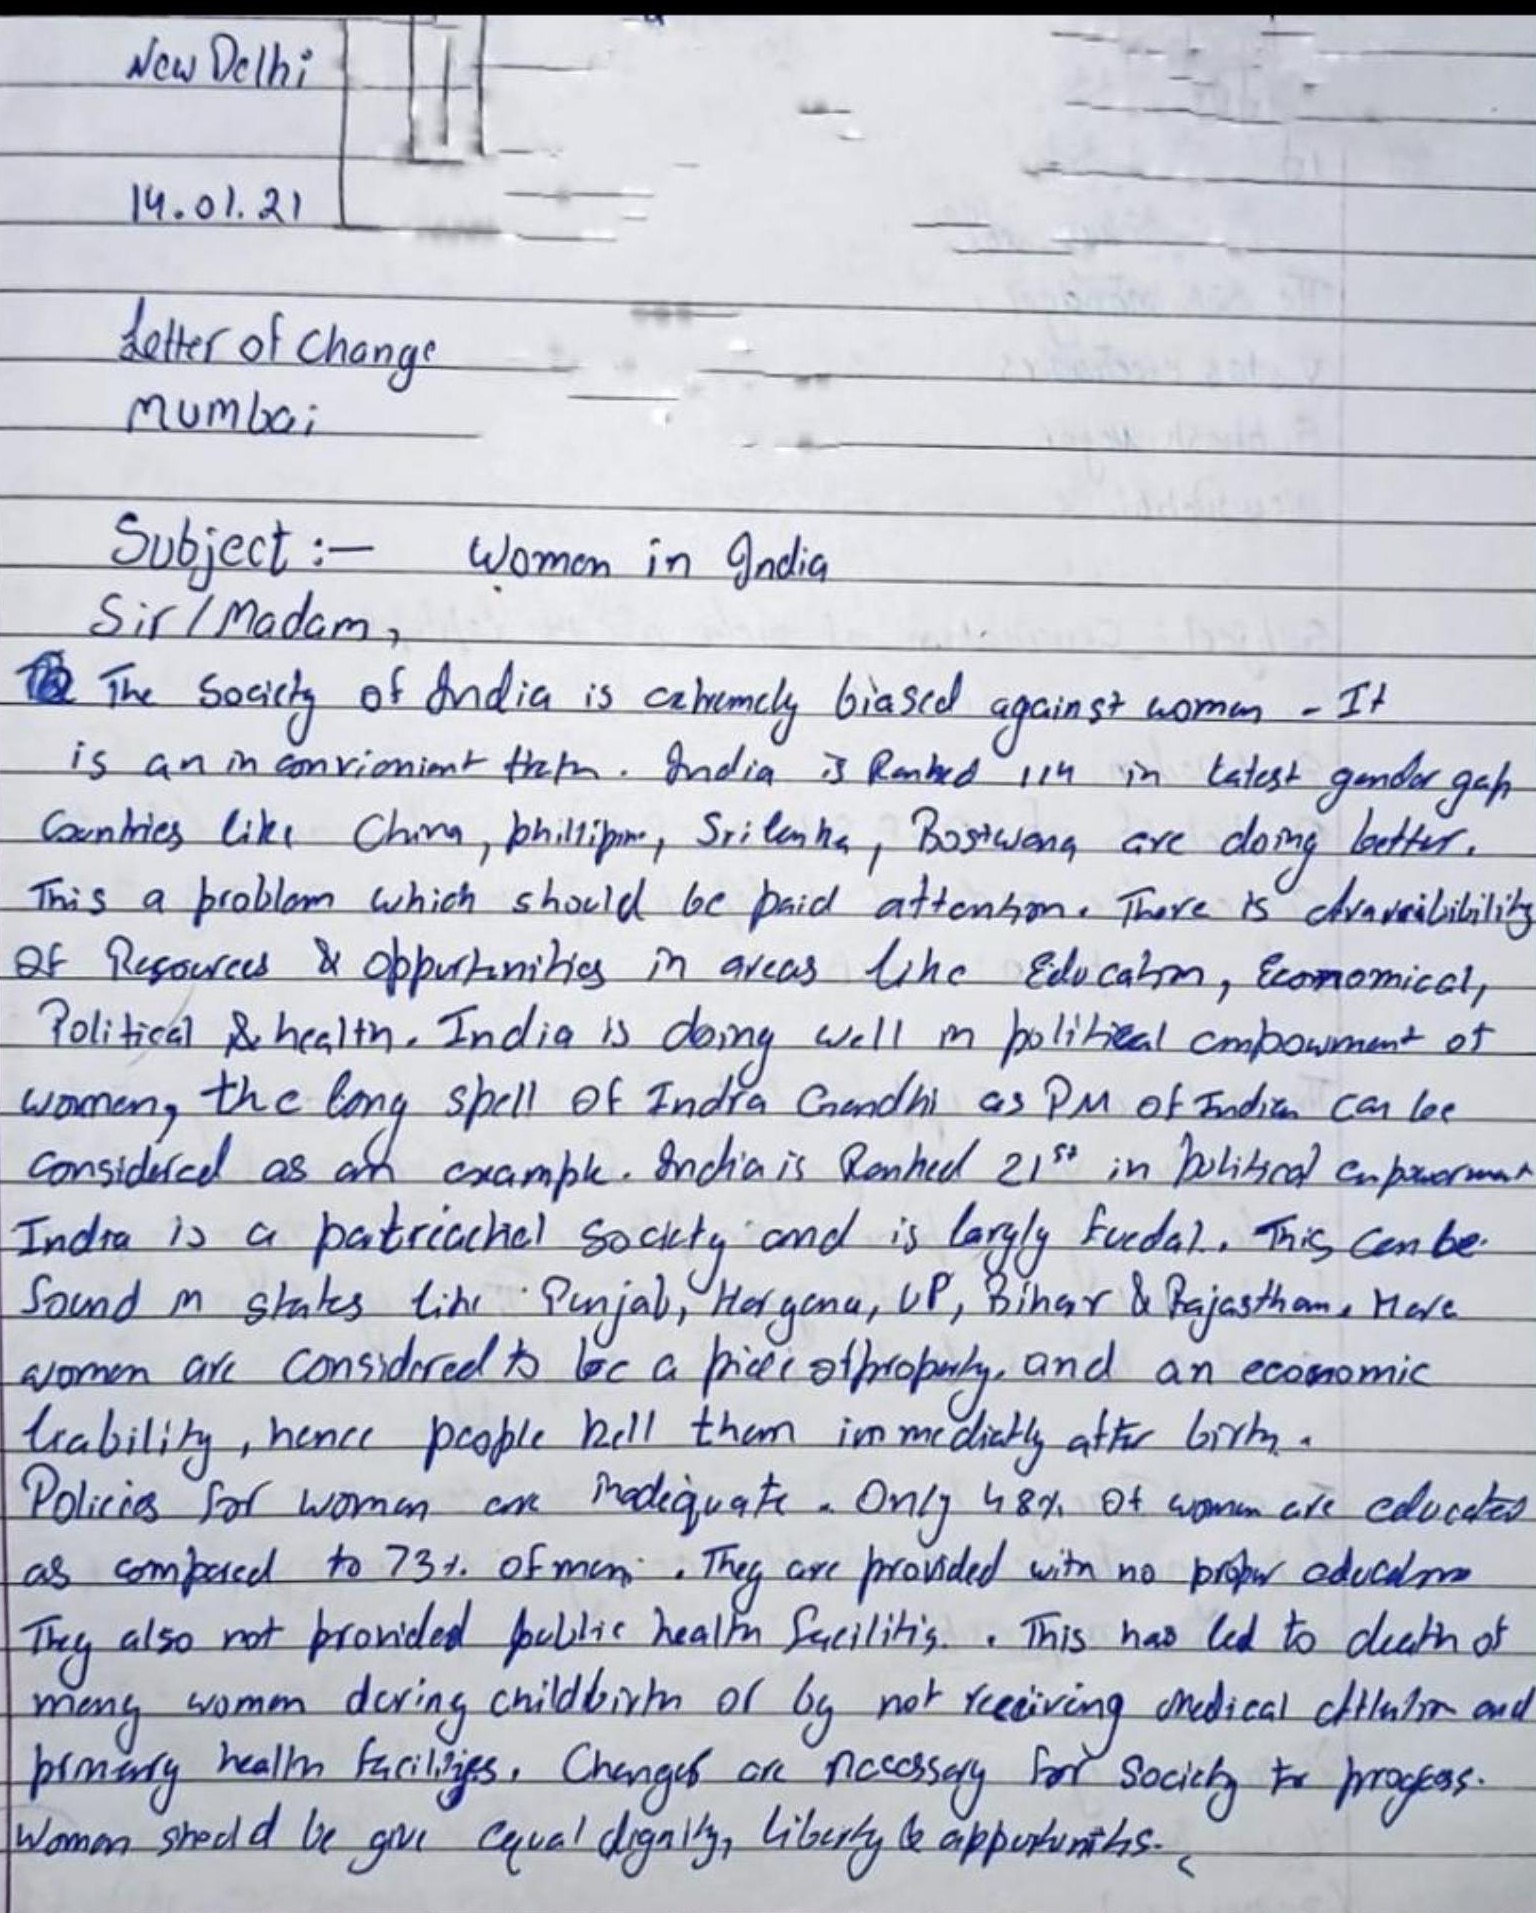 New Delhi
14.01.21
Letter of Change
Mumbai
Subject :- Women in India
Sir / Madam,
The Society of India is extremely biased against women - It
is an in convionient truth. India is Ranked 114 in latest gender gap
Countries like China, phillipine, Sri lanka, Bostwana are doing better.
This a problem which should be paid attention. There is
of Resources & oppurtunities in areas like Education, Economical,
Political & health. India is doing well in political empowment of
women, the long spell of Indra Gandhi as PM of India can be
considered as an example. India is Ranked 21st in political empowerment
India is a patriachal society and is largly fuedal. This can be
found in states like Punjab, Haryana, UP, Bihar & Rajasthan. Here
women are considered to be a piece of property. and an economic
liability, hence people kill them immediatly after birth.
Policies for women are inadequate. Only 48% of women are educated
as compared to 73% of men. They are provided with no proper education
They also not provided public health facilities. This has led to death of
many women during childbirth or by not receiving medical attention and
primary health facilities. Changes are necessary for Society to progress.
Women should be give equal dignity, liberty & oppurtunities.